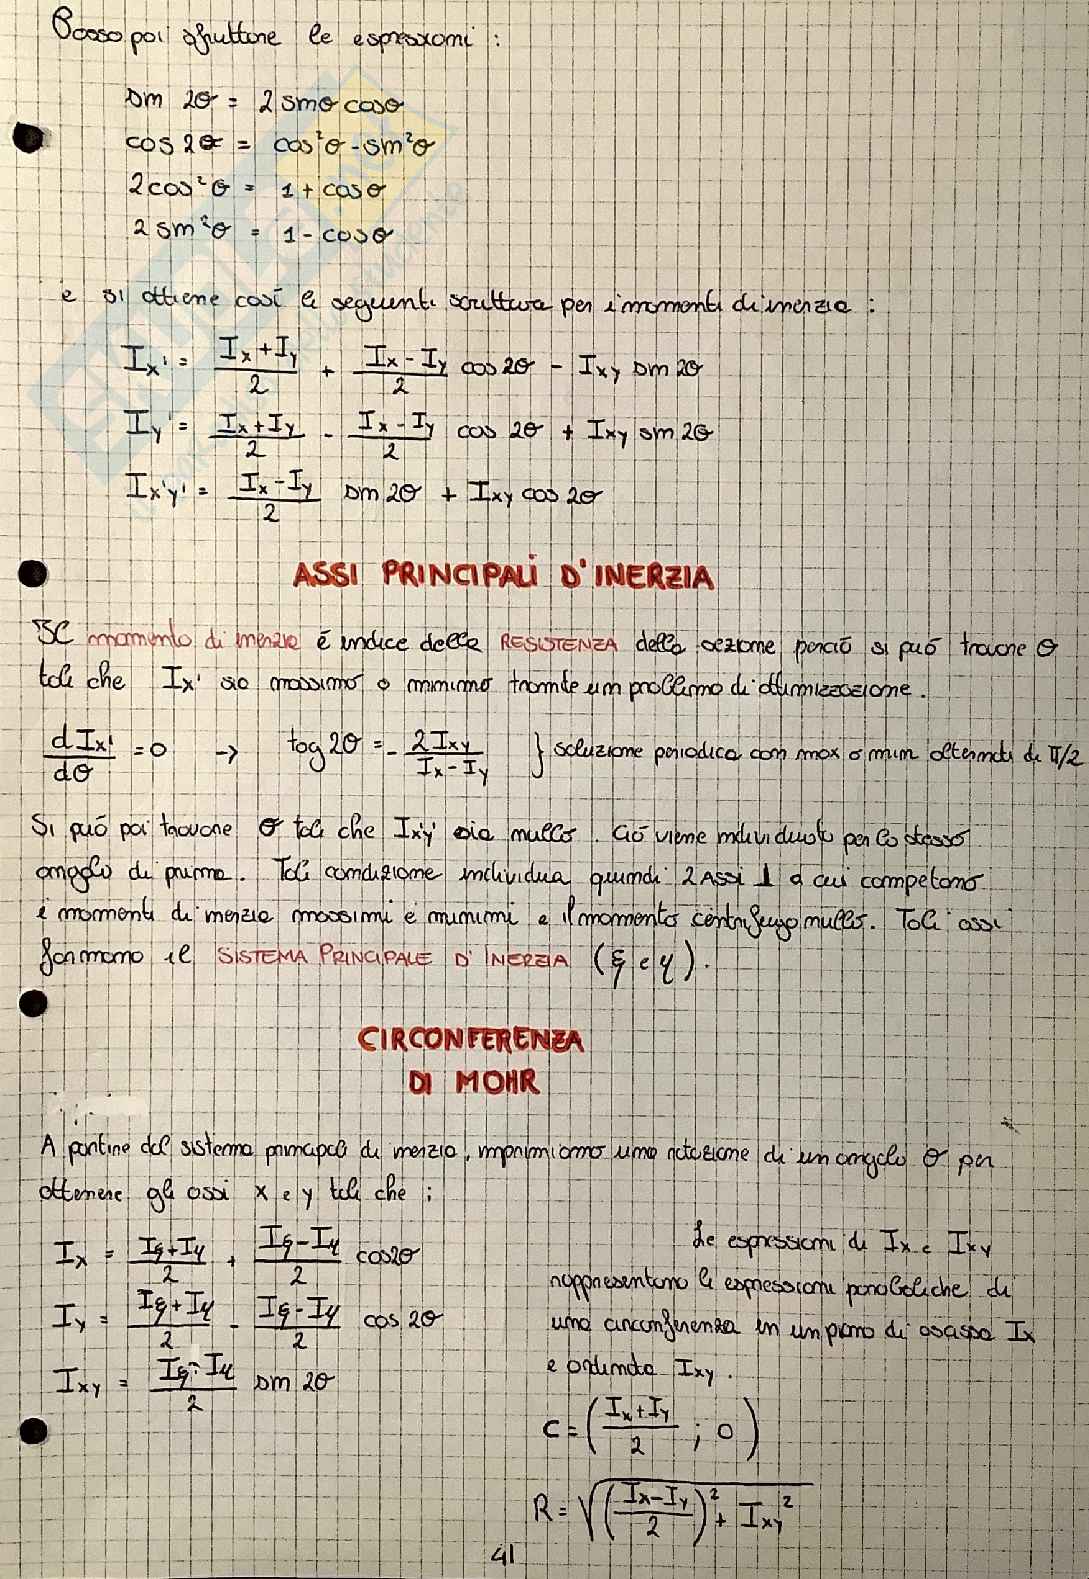 Posso poi sfruttare le espressioni :
sin 2θ = 2 sinθ cosθ
cos 2θ = cos²θ - sin²θ
2cos²θ = 1 + cosθ
2 sin²θ = 1 - cosθ
e si ottiene così le seguenti scrittura per i momenti di inerzia :
Ix' = (Ix + Iy)/2 + (Ix - Iy)/2 cos 2θ - Ixy sin 2θ
Iy' = (Ix + Iy)/2 - (Ix - Iy)/2 cos 2θ + Ixy sin 2θ
Ix'y' = (Ix - Iy)/2 sin 2θ + Ixy cos 2θ
ASSI PRINCIPALI D'INERZIA
Il momento di inerzia è indice della RESISTENZA della sezione perciò si può trovare θ
tali che Ix' sia massimo o minimo tramite un problema di ottimizzazione.
dIx'/dθ = 0 → tag 2θ = - 2Ixy/(Ix - Iy) } soluzione periodica con max o min alternati di π/2
Si può poi trovare θ tali che Ix'y' sia nullo. Ciò viene individuato per lo stesso
angolo di prima. Tali condizione individua quindi 2 ASSI ⊥ a cui competono
i momenti di inerzia massimi e minimi e il momento centrifugo nullo. Tali assi
formano il SISTEMA PRINCIPALE D'INERZIA (ξ e η).
CIRCONFERENZA
DI MOHR
A partire dal sistema principale di inerzia, imprimiamo una rotazione di un angolo θ per
ottenere gli assi x e y tali che :
Ix = (Iξ + Iη)/2 + (Iξ - Iη)/2 cos2θ
Iy = (Iξ + Iη)/2 - (Iξ - Iη)/2 cos 2θ
Ixy = (Iξ - Iη)/2 sin 2θ
Le espressioni di Ix e Ixy
rappresentano le espressioni paraboliche di
una circonferenza in un piano di ascissa Ix
e ordinata Ixy.
C = ((Ix + Iy)/2 ; 0)
R = √(((Ix - Iy)/2)² + Ixy²)
41